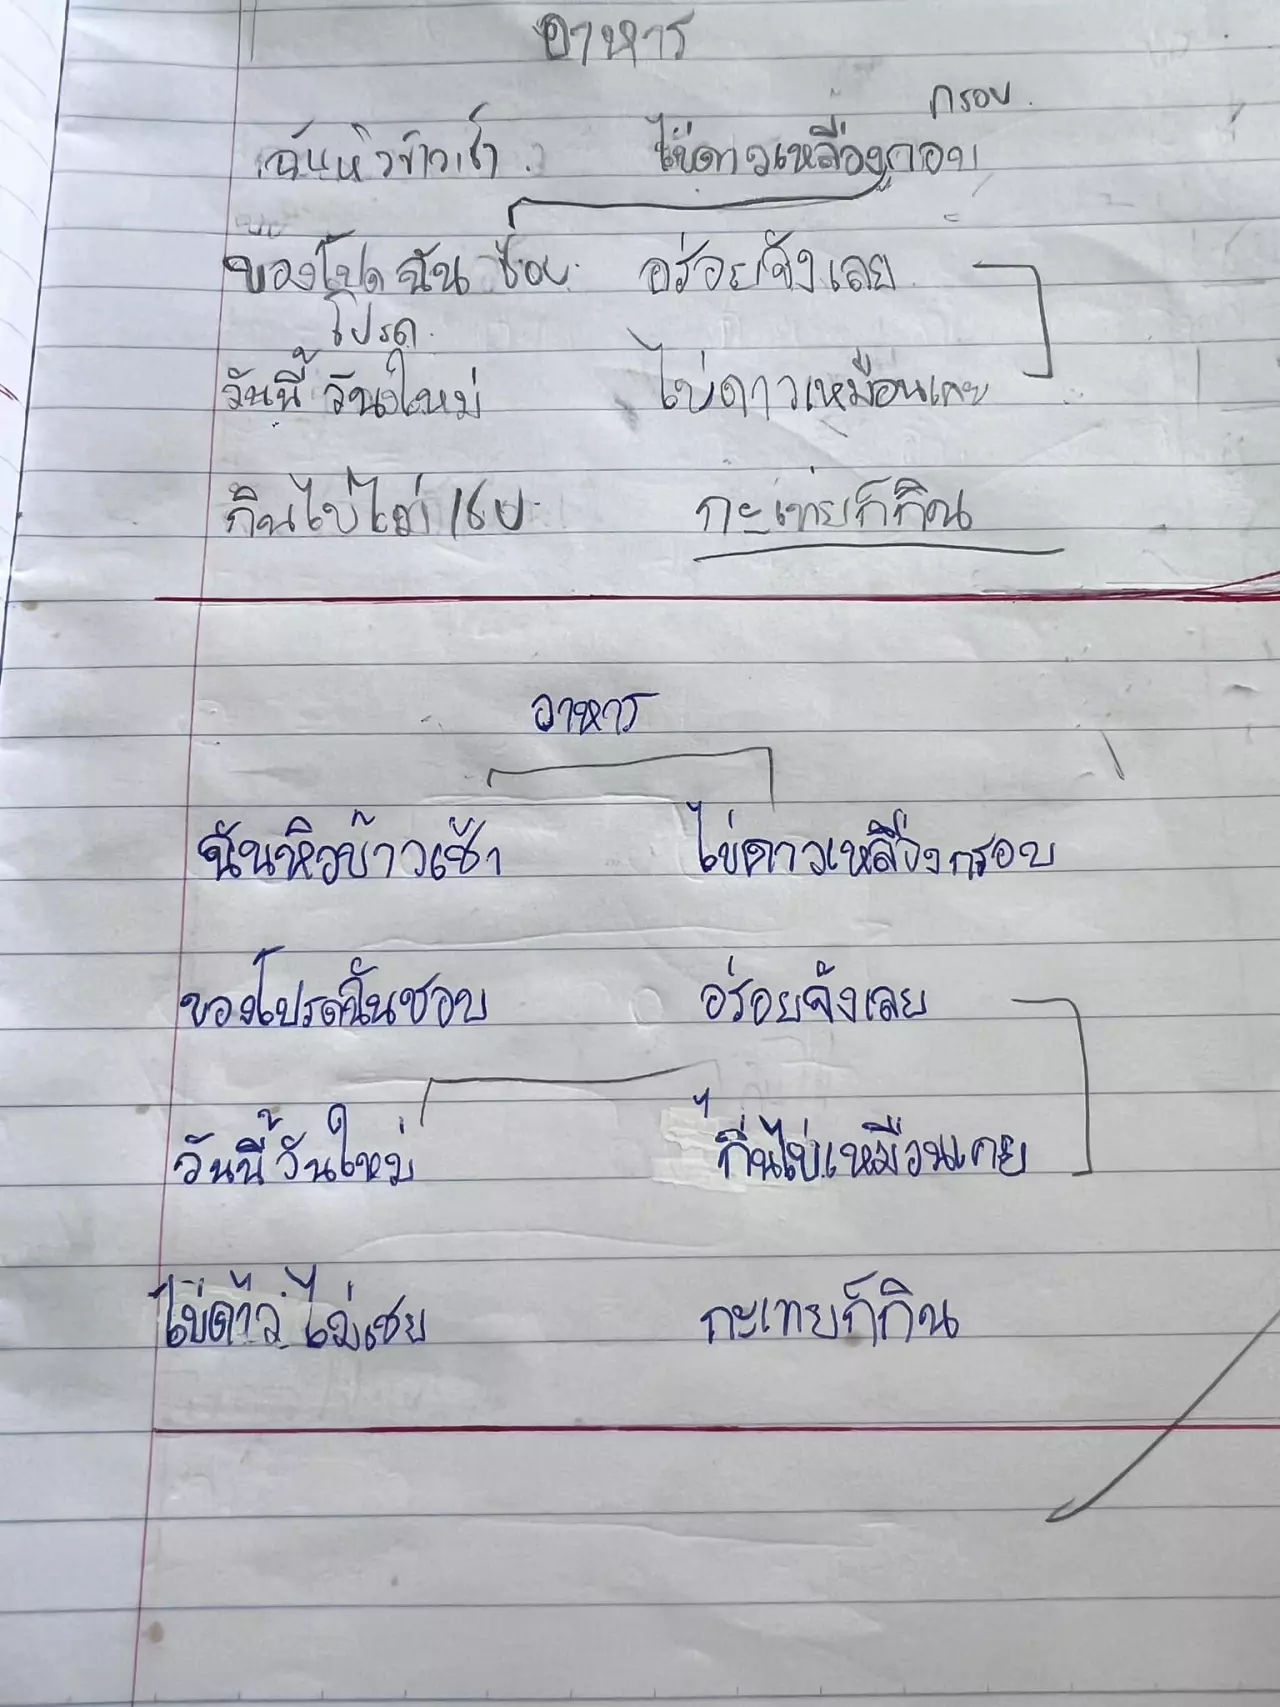 อาหาร
กรอบ
ฉันหิวข้าวเช้า ไข่ดาวเหลืองกอบ
ของโปดฉัน ชอบ อร่อยจังเลย
โปรด
วันนี้ วันใหม่ ไข่ดาวเหมือนเคย
กินไข่ไม่เชย กะเทยก็กิน
อาหาร
ฉันหิวข้าวเช้า ไข่ดาวเหลืองกรอบ
ของโปรดฉันชอบ อร่อยจังเลย
วันนี้ วันใหม่ กินไข่เหมือนเคย
ไข่ดาว ไม่เชย กะเทยก็กิน